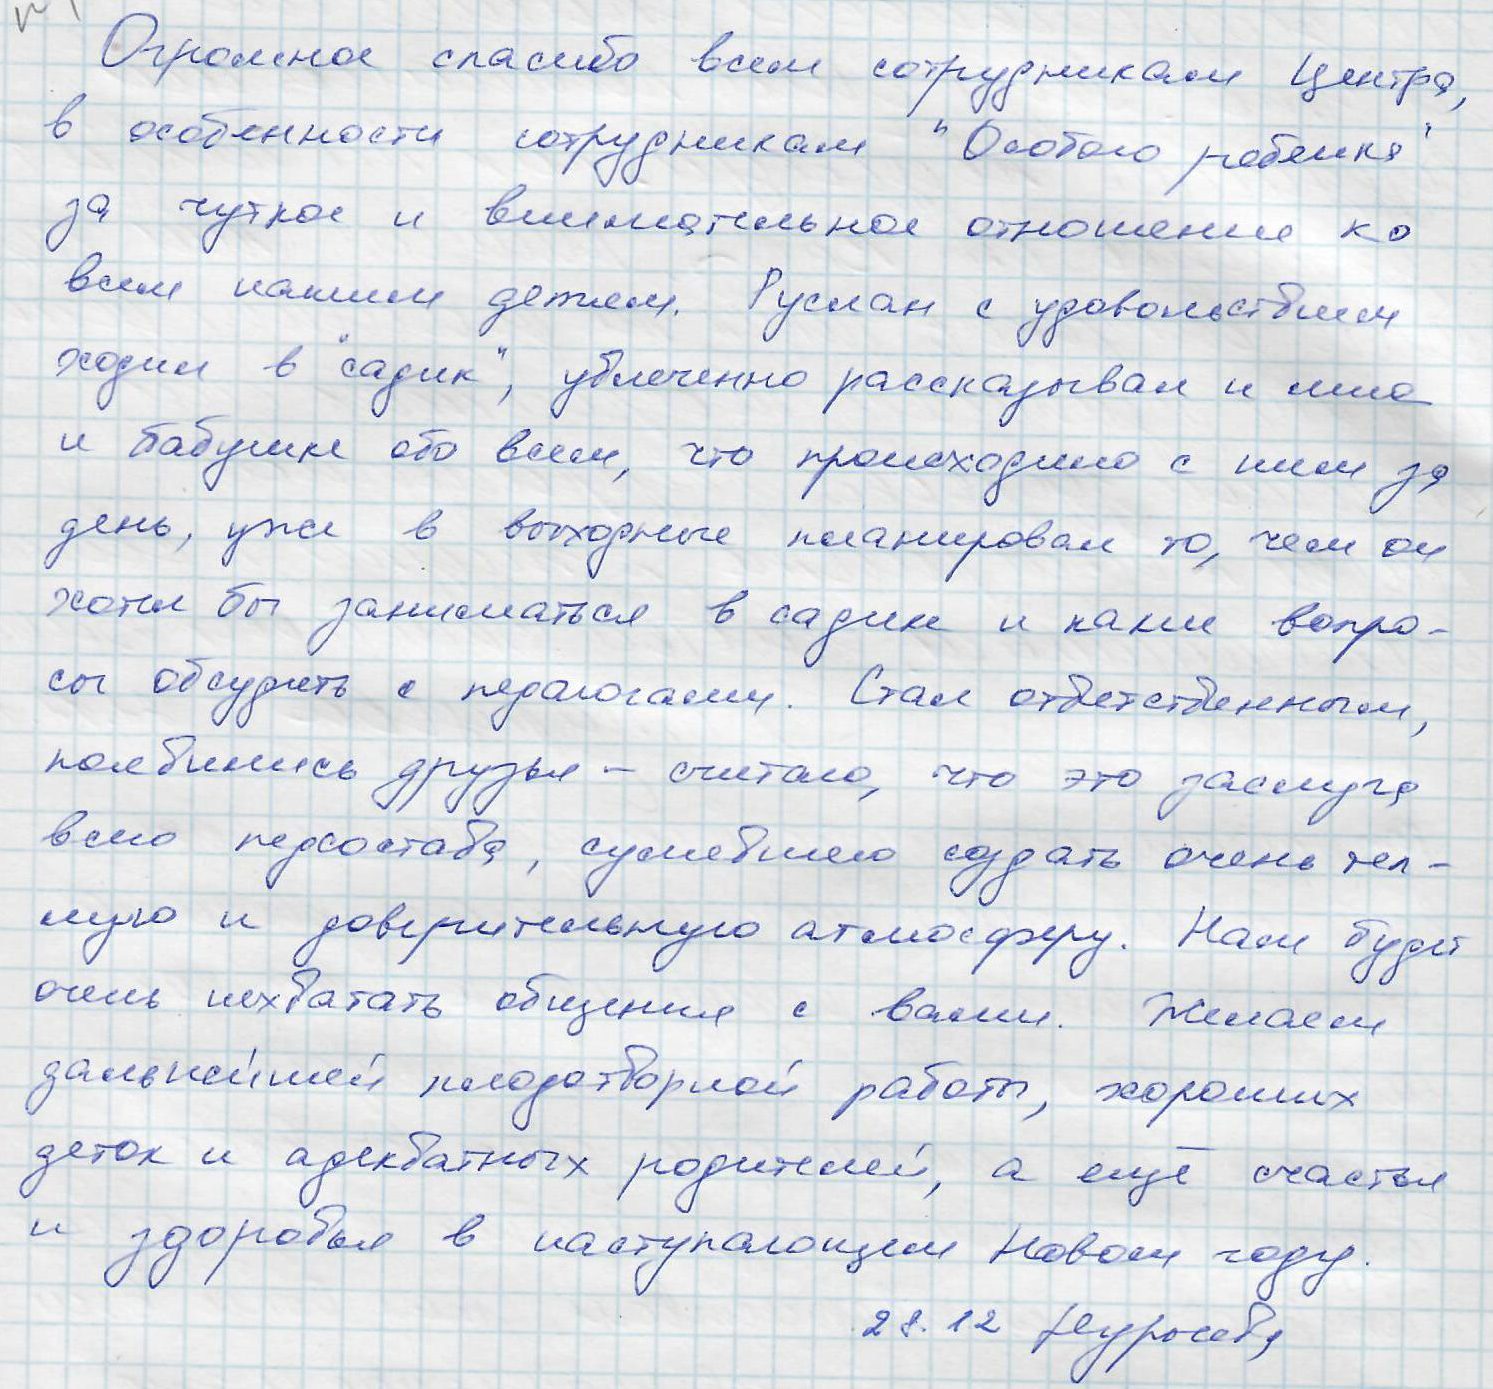 Огромное спасибо всем сотрудникам Центра,
в особенности сотрудникам "Особого ребенка"
за чуткое и внимательное отношение ко
всем нашим детям. Руслан с удовольствием
ходил в "садик", увлеченно рассказывал и мне
и бабушке обо всем, что происходило с ним за
день, уже в выходные планировал то, чем он
хотел бы заниматься в садике и какие вопро-
сы обсудить с педагогами. Стал ответственным,
появились друзья - считаю, что это заслуга
всего педсостава, сумевшего создать очень теп-
лую и доверительную атмосферу. Нам будет
очень нехватать общения с вами. Желаем
дальнейшей плодотворной работы, хороших
деток и адекватных родителей, а ещё счастья
и здоровья в наступающем Новом году.
28.12